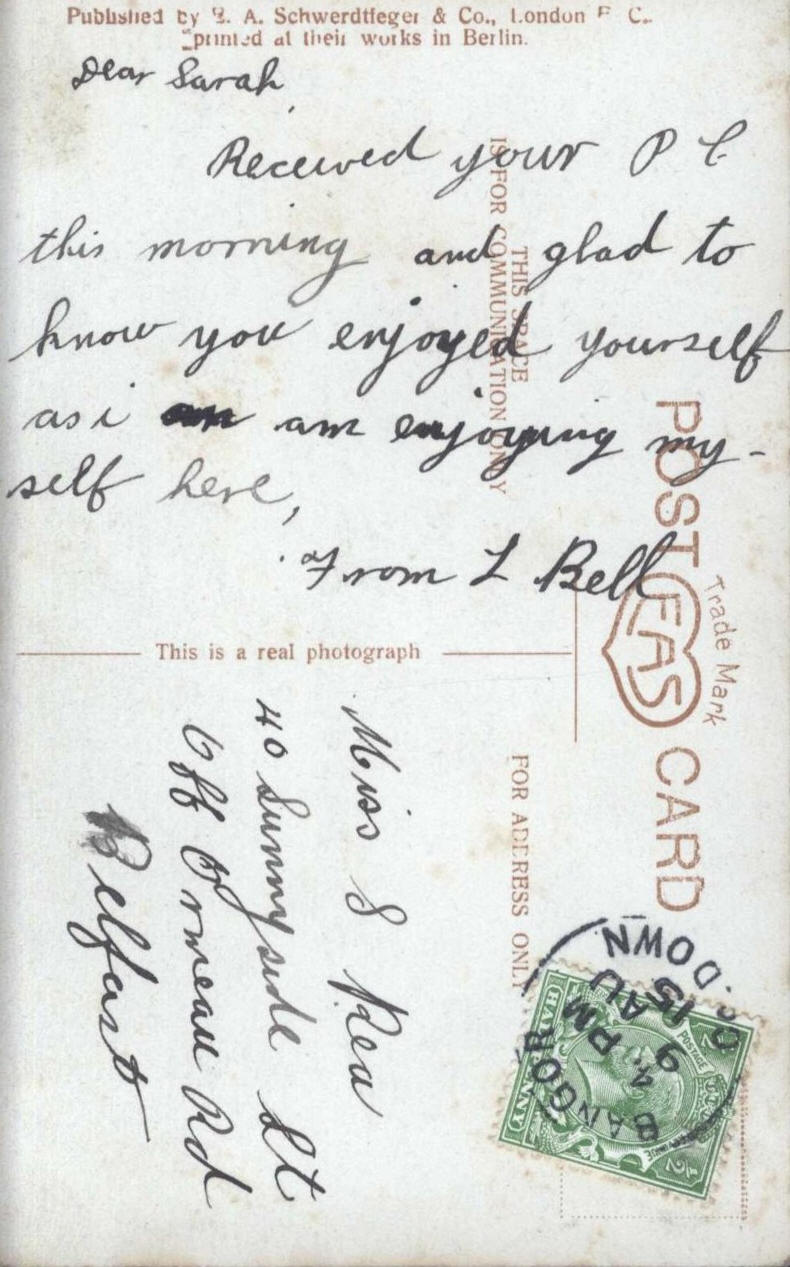 Published by E. A. Schwerdtfeger & Co., London E. C.
printed at their works in Berlin.
Dear Sarah
Received your P C
this morning and glad to
know you enjoyed yourself
as i am enjoying my-
self here,
From L Bell
THIS SPACE
IS FOR COMMUNICATION ONLY
POST CARD
EAS
Trade Mark
This is a real photograph
FOR ADDRESS ONLY
Miss S Rea
40 Sunnyside St
Off Ormeau Rd
Belfast
BANGOR
4. PM
15 AU
CO. DOWN
POSTAGE
HALFPENNY
1/2
1/2